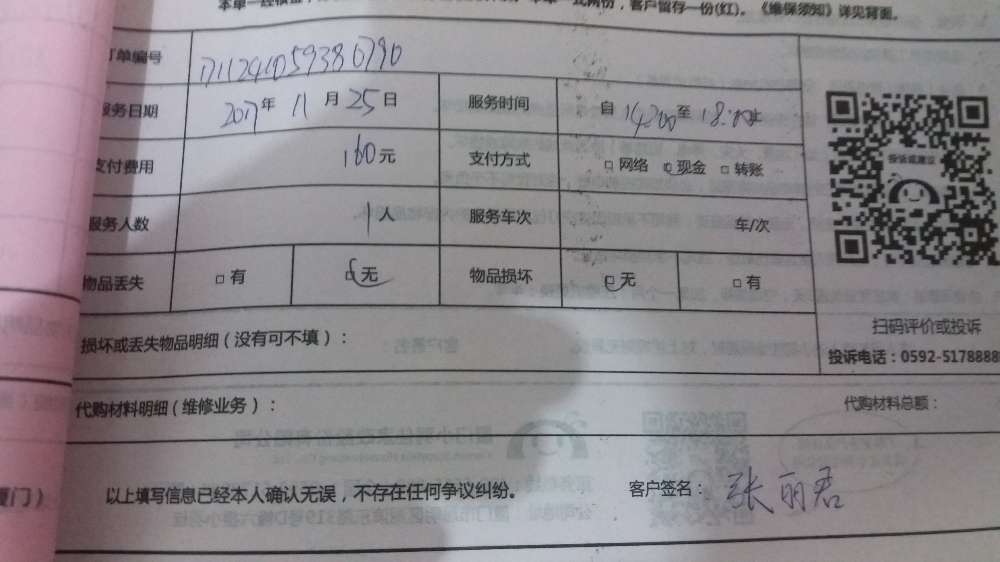 客户留存一份(红)。《维保须知》详见背面。
订单编号 1711241059380790
服务日期 2017年 11月 25日 服务时间 自 14:00 至 18:00 止
支付费用 160元 支付方式 □网络 □现金 □转账
服务人数 1人 服务车次 车/次
物品丢失 □有 □无 物品损坏 □无 □有
投诉或建议
扫码评价或投诉
损坏或丢失物品明细(没有可不填):
投诉电话:0592-5178888
代购材料明细(维修业务): 代购材料总额:
厦门)
以上填写信息已经本人确认无误,不存在任何争议纠纷。 客户签名: 张丽君